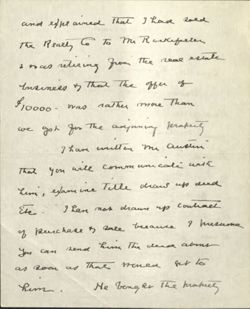 and explained that I had sold
the Realty Co to Mr Rickfelder
& was retiring from the real estate
business & that the offer of
$10000 - was rather more than
we got for the adjoining property
I have written Mr Austin
that you will communicate with
him, examine title draw up deed
etc. I have not drawn up contract
of purchase & sale because I presume
you can send him the deed
as soon as that would get to
him. He bought the property